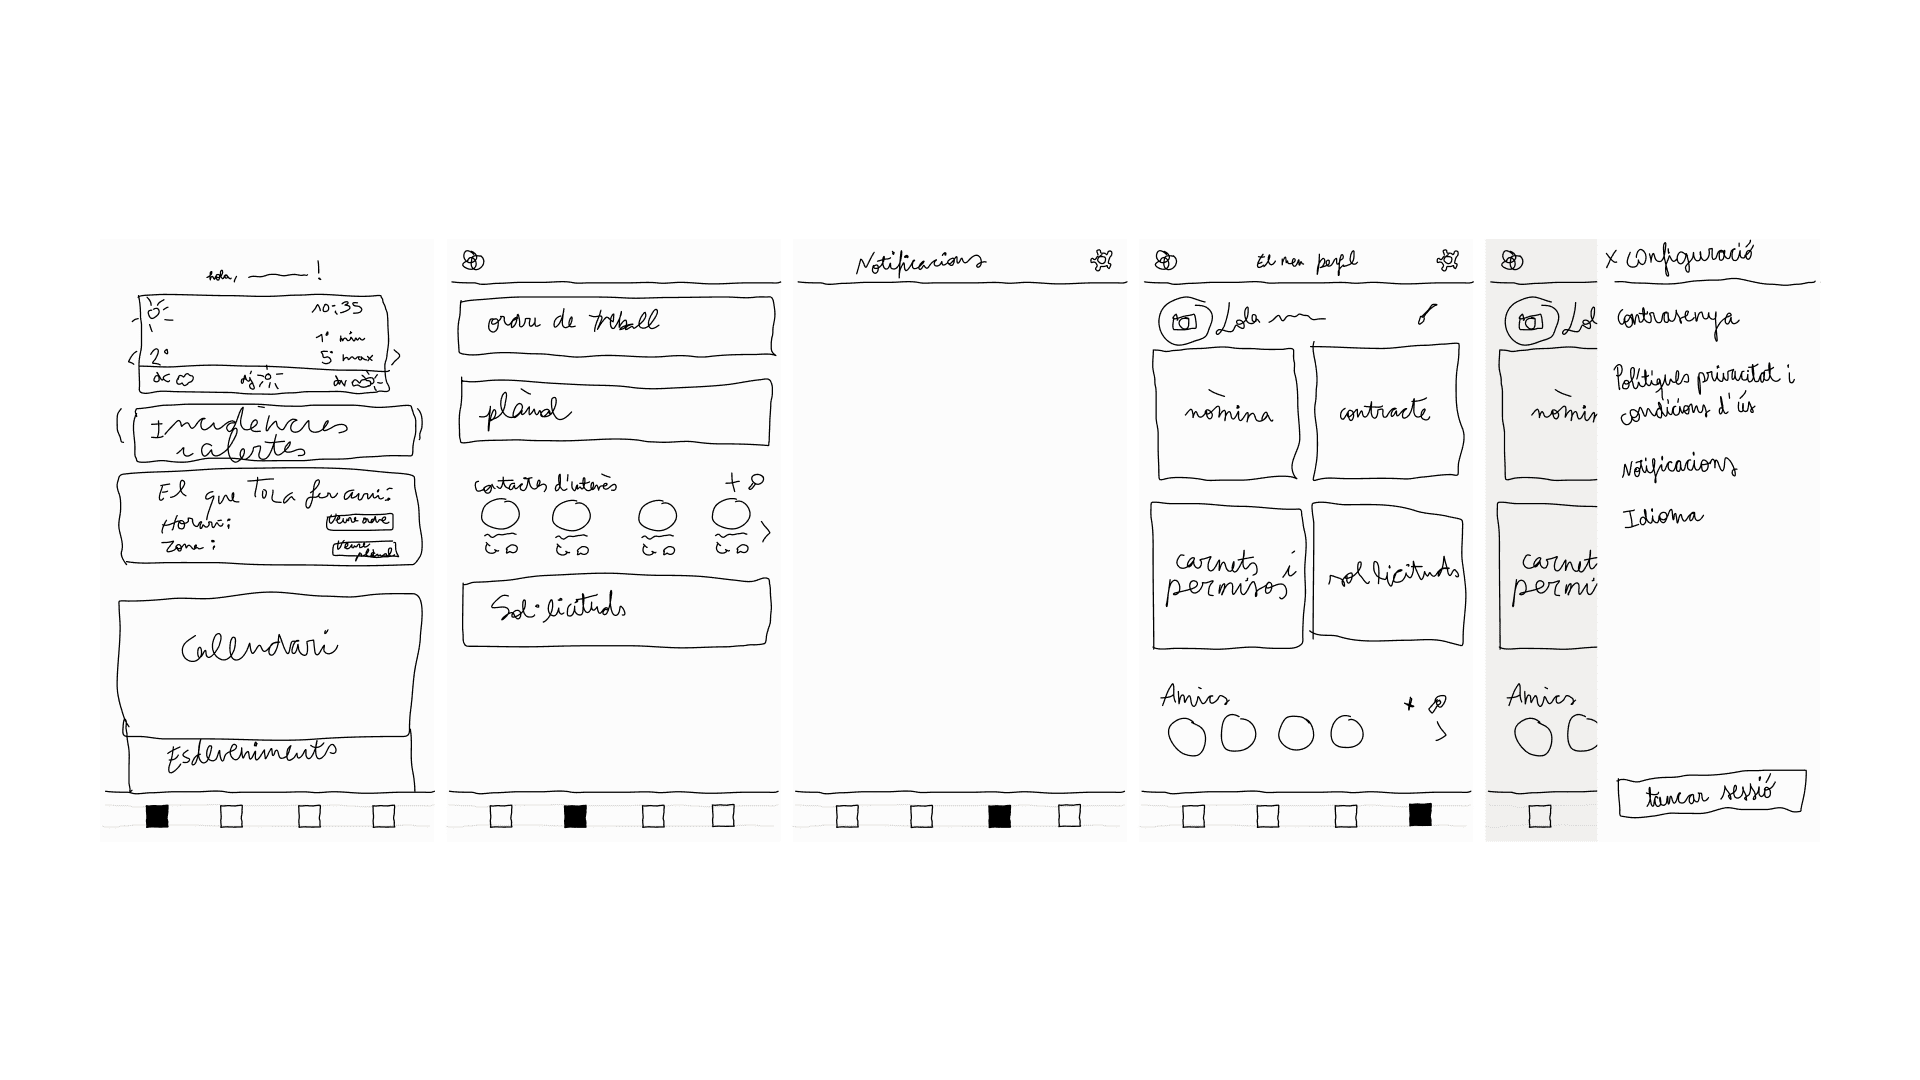 hola, !
10:35
1° min
2°
5° max
dc
dj
dv
Incidències
i alertes
El que TOCA fer avui:
Horari:
Veure ordre
Zona:
Veure plànol
Calendari
Esdeveniments
ordre de treball
plànol
Contactes d'interès
+
Sol·licituds
Notificacions
El meu perfil
Lola
nòmina
contracte
carnets i
permisos
sol·licituds
Amics
+
X Configuració
Lol
contrasenya
nòmin
Polítiques privacitat i
condicions d'ús
Notificacions
Idioma
carnet
permi
Amics
tancar sessió